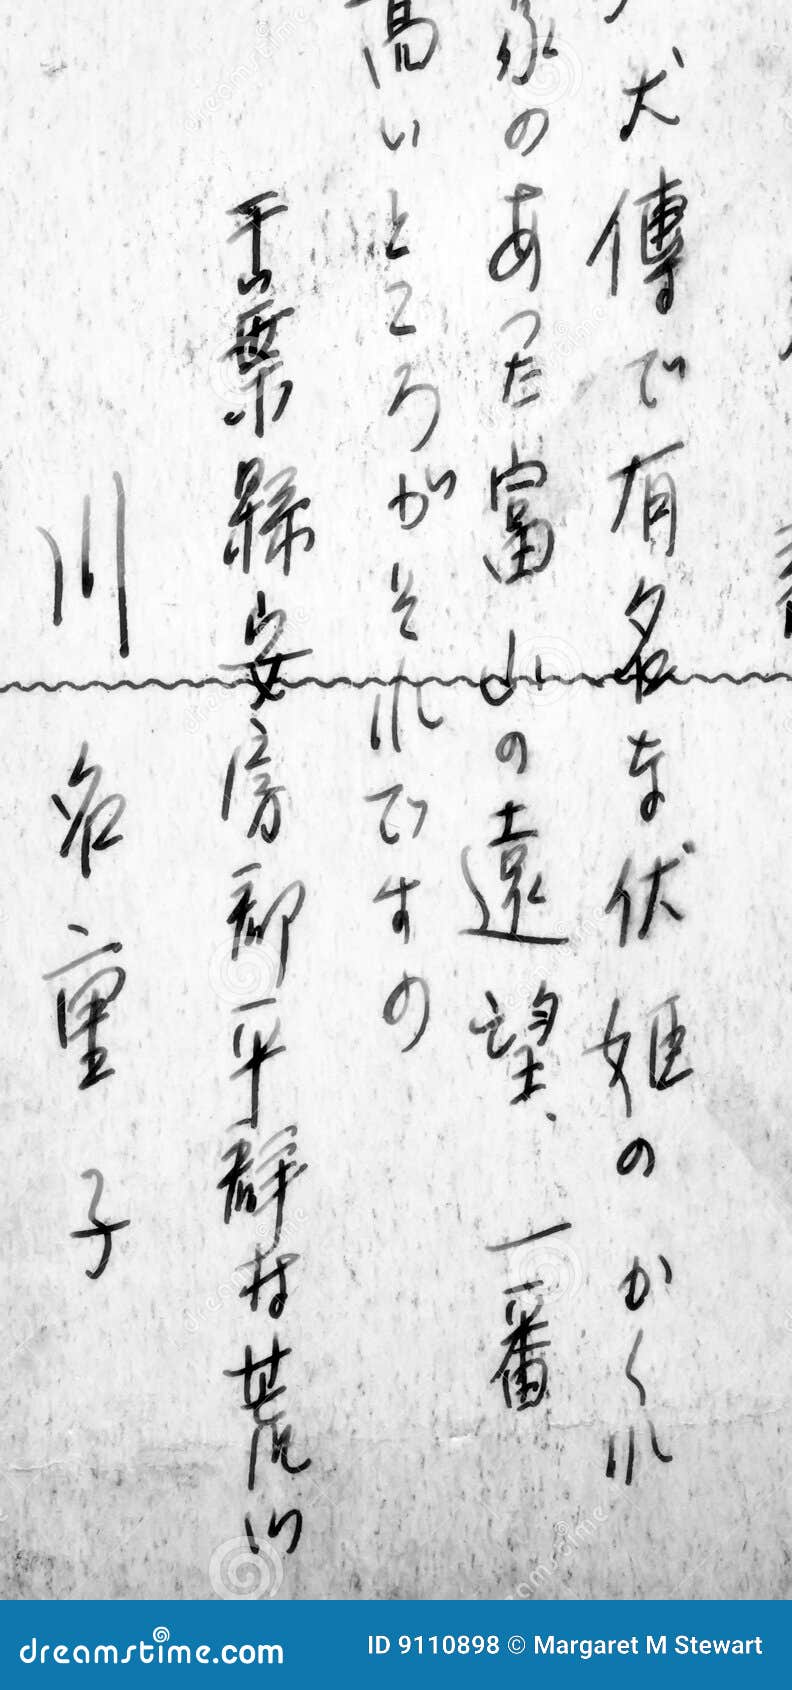 犬傳で有名な伏姫のかくれ
家のあった富山の遠望、一番
高いところがそれですの
千葉縣安房郡平群村荒川
川名重子
dreamstime.com
ID 9110898 © Margaret M Stewart